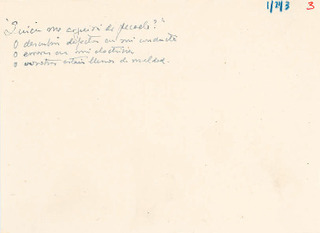 1/243 3
"Quien me argüirá de pecado?"
O descubrir defectos en mi conducta
O errores en mi doctrina
O vosotros estáis llenos de maldad.